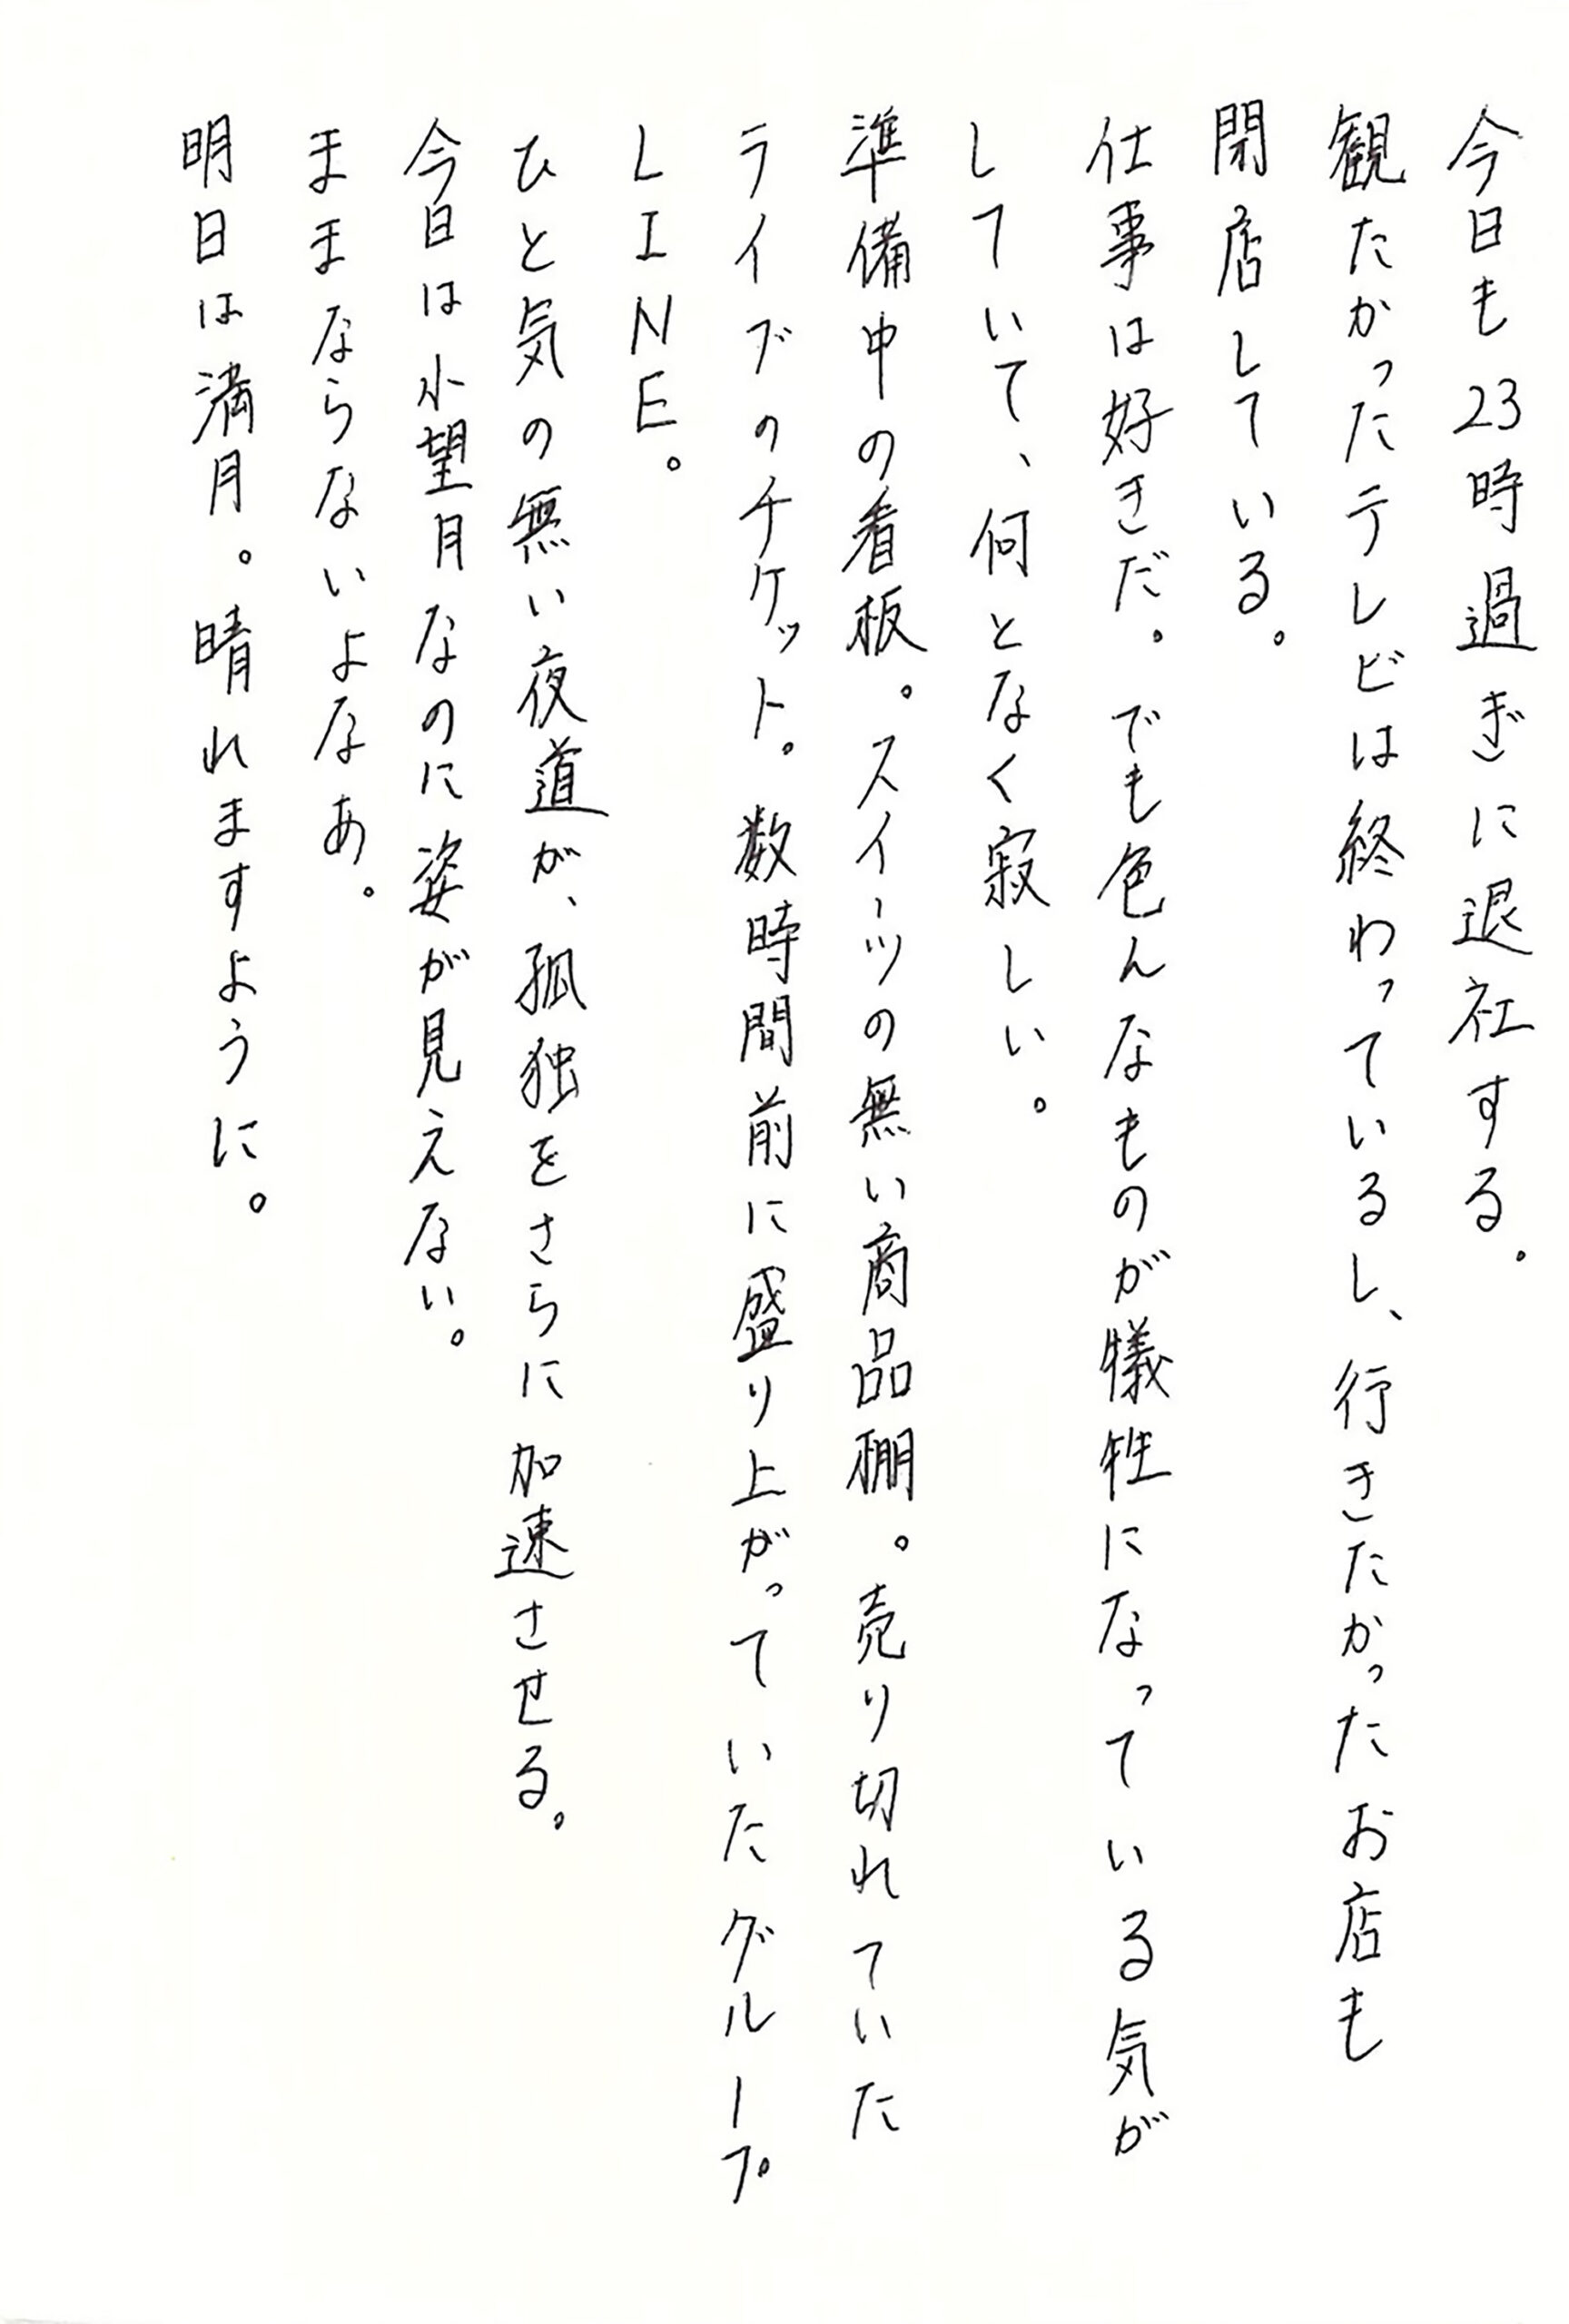 今日も23時過ぎに退社する。
観たかったテレビは終わっているし、行きたかったお店も
閉店している。
仕事は好きだ。でも色んなものが犠牲になっている気が
していて、何となく寂しい。
準備中の看板。スイーツの無い商品棚。売り切れていた
ライブのチケット。数時間前に盛り上がっていたグループ
LINE。
ひと気の無い夜道が、孤独をさらに加速させる。
今日は小望月なのに姿が見えない。
ままならないよなあ。
明日は満月。晴れますように。